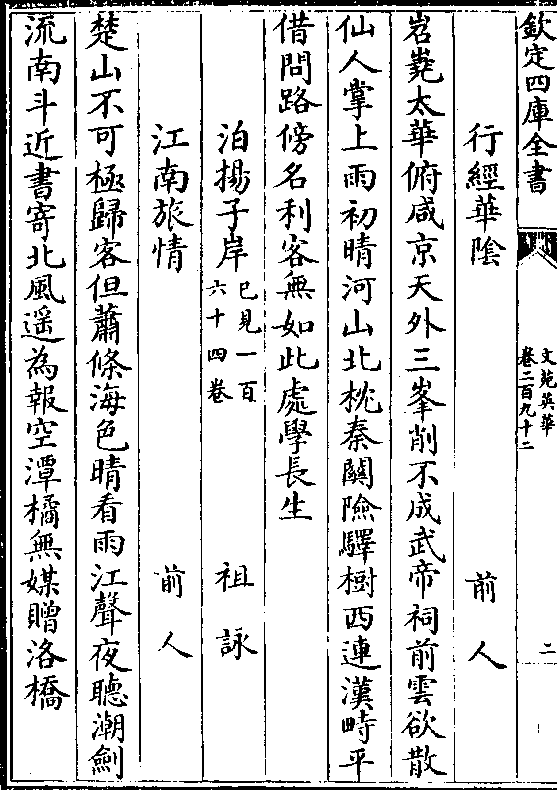 欽定四庫全書
文苑英華
卷二百九十二
二
行經華陰　前人
岧嶤太華俯咸京天外三峯削不成武帝祠前雲欲散
仙人掌上雨初晴河山北枕秦闗險驛樹西連漢畤平
借問路傍名利客無如此處學長生
泊揚子岸
已見一百
六十四卷
祖詠
江南旅情　前人
楚山不可極歸客但蕭條海色晴看雨江聲夜聽潮劍
流南斗近書寄北風遥為報空潭橘無媒贈洛橋